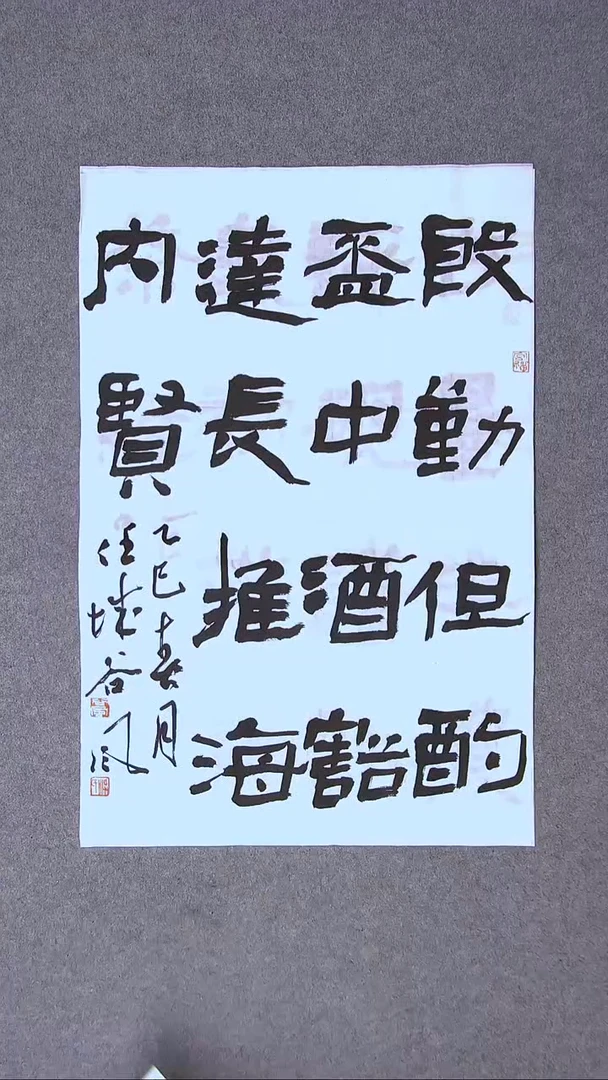 殷勤但酌
盃中酒豁
達長推海
內賢
乙巳春月
任城谷风